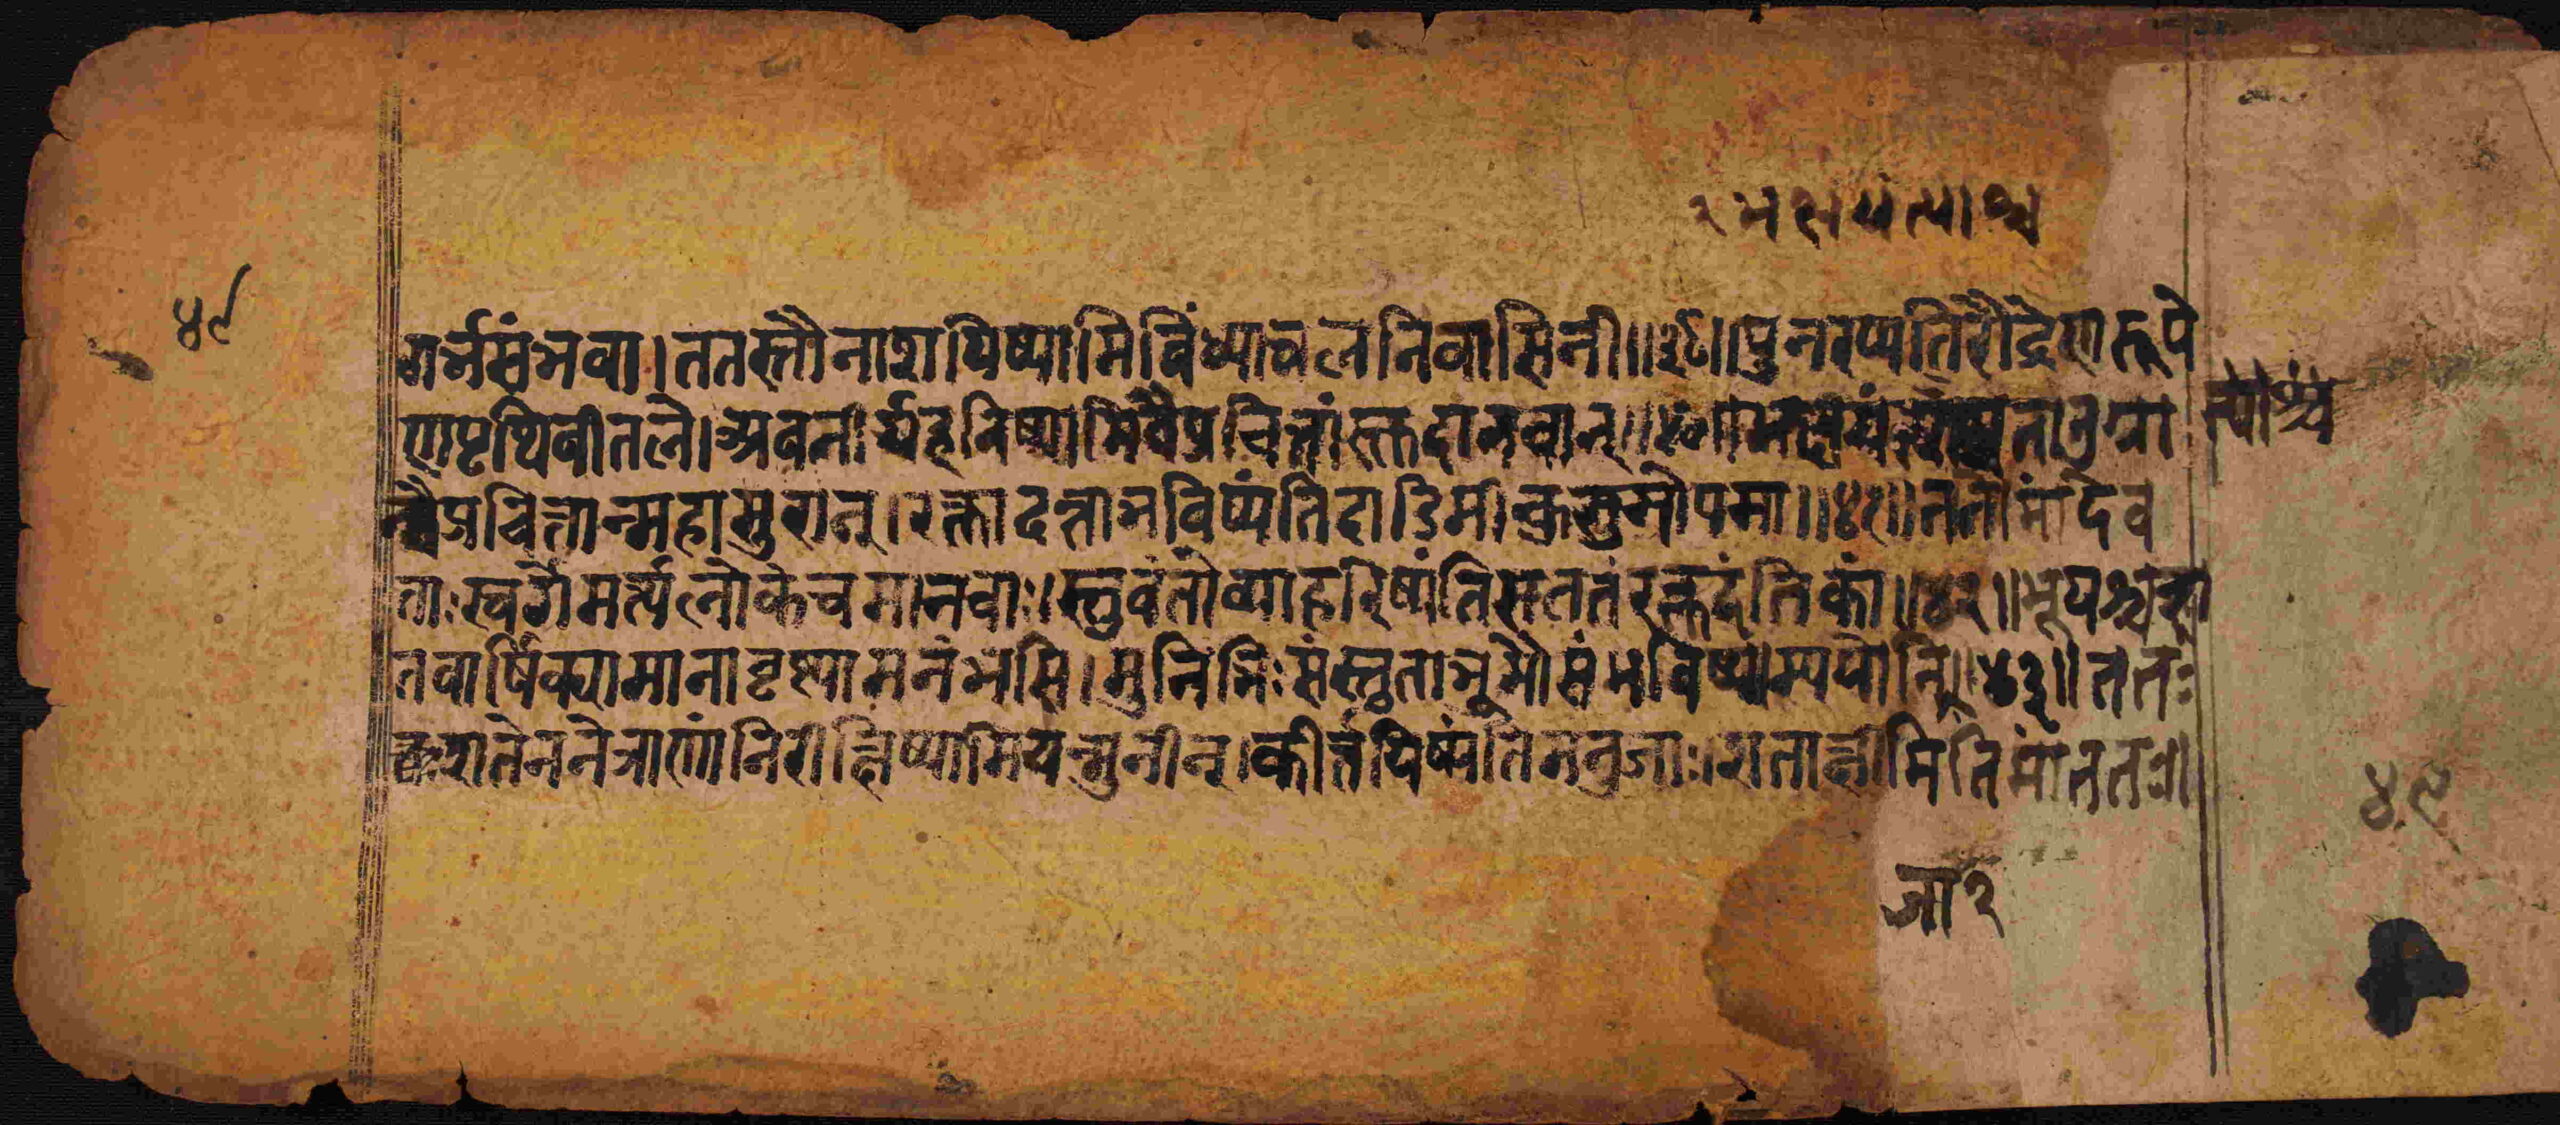 २ भक्षयंत्याश्च
४९
गर्भसंभवा।ततस्तौनाशयिष्यामिविंध्याचलनिवासिनी॥३९॥पुनरप्यतिरौद्रेणरूपे
णपृथिवीतले।अवतीर्यहनिष्यामिवैप्रचित्तांस्तुदानवान्॥४०॥ तानुग्रा
त्याश्च
न्वैप्रचित्तान्महासुरान्।रक्तादन्ताभविष्यंतिदाडिमीकुसुमोपमा॥४१॥ततोमांदेव
ताःस्वर्गेमर्त्यलोकेचमानवाः।स्तुवंतोव्याहरिष्यंतिसततंरक्तदंतिकां॥४२॥भूयश्चश
तवार्षिक्यामानावृष्ट्यामनंभसि।मुनिभिःसंस्तुताभूमौसंभविष्याम्ययोनि॥४३॥ततः
शतेननेत्राणांनिरीक्षिष्यामियन्मुनीन्।कीर्त्तयिष्यंतिमनुजाः।शताक्षीमितिमांततः॥
४९
जा२